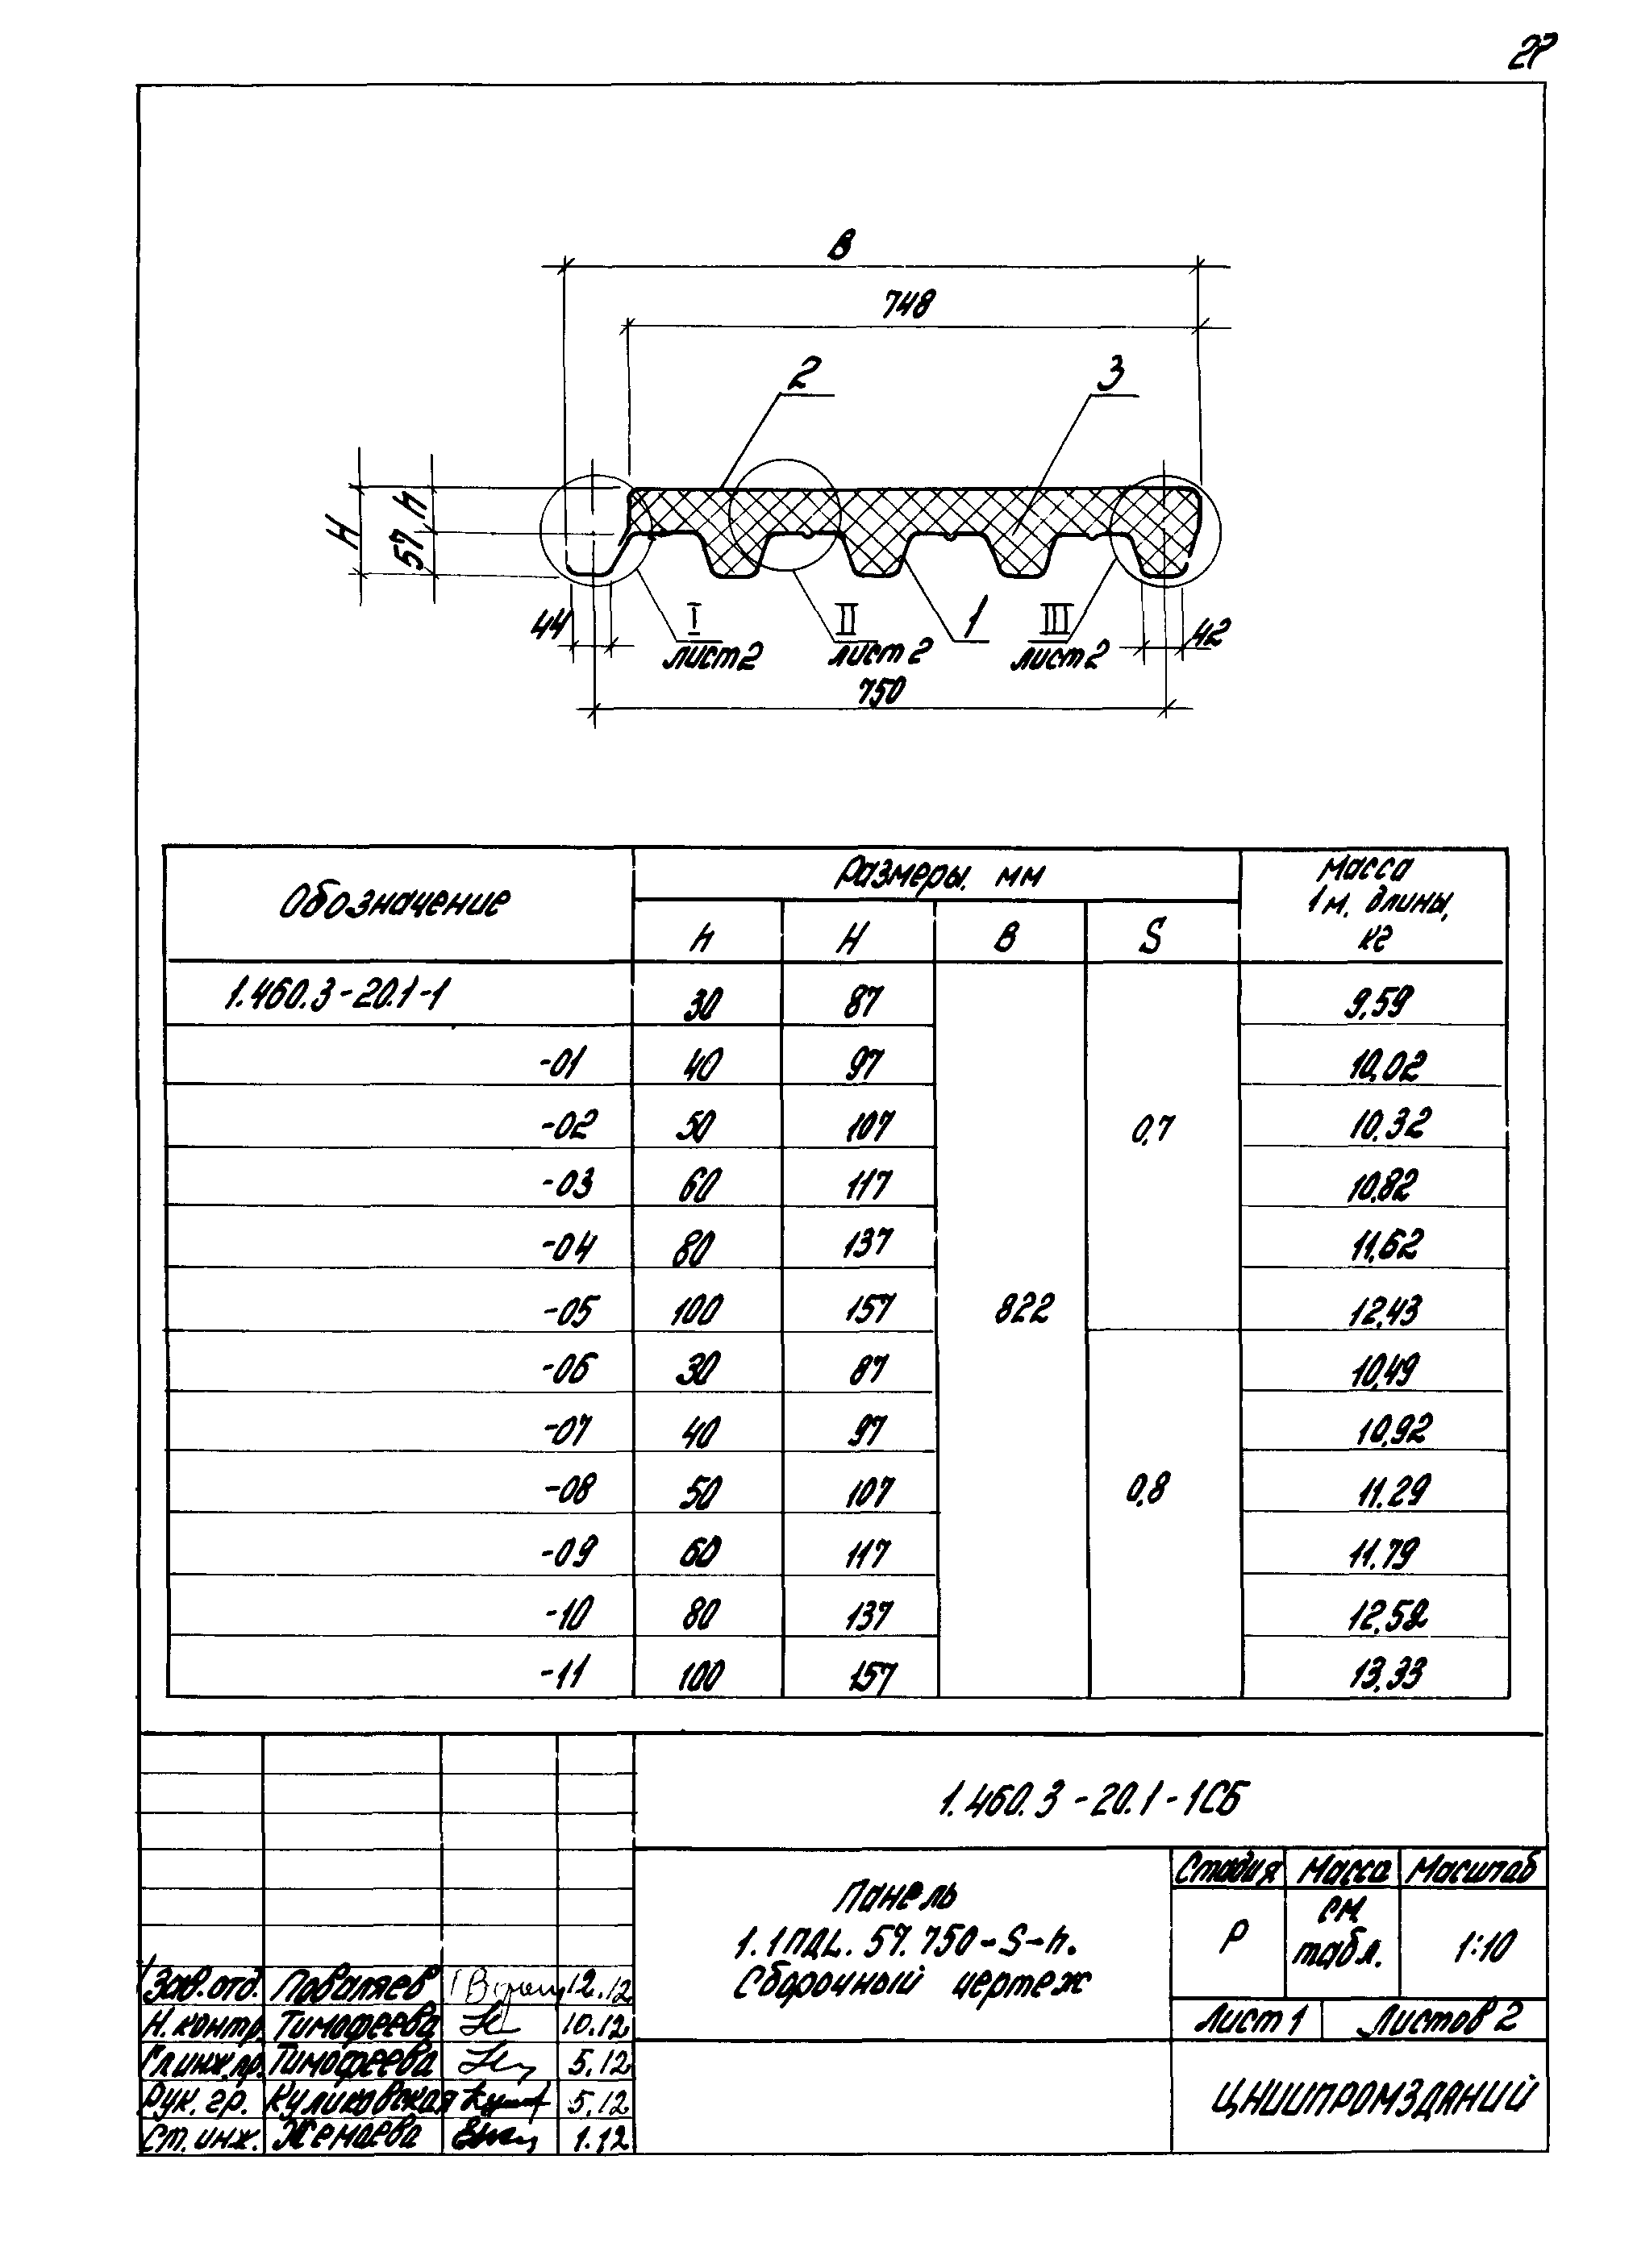 27
В
748
2
3
H
h
57
44
I
лист 2
II
лист 2
1
III
лист 2
42
750
Обозначение
Размеры, мм
Масса 1 м. длины, кг
h
H
В
S
1.460.3-20.1-1
30
87
822
0,7
9,59
-01
40
97
10,02
-02
50
107
10,32
-03
60
117
10,82
-04
80
137
11,62
-05
100
157
12,43
-06
30
87
0,8
10,49
-07
40
97
10,92
-08
50
107
11,29
-09
60
117
11,79
-10
80
137
12,52
-11
100
157
13,33
1.460.3-20.1-1СБ
Панель
1.1ПДL.57.750-S-h.
Сборочный чертеж
Стадия
Масса
Масштаб
Р
см. табл.
1:10
Лист 1
Листов 2
ЦНИИПРОМЗДАНИЙ
Зав.отд. Поваляев 12.12
Н.контр. Тимофеева 10.12
Гл.инж.пр. Тимофеева 5.12
Рук. гр. Куликовская 5.12
Ст. инж. Жемаева 1.12